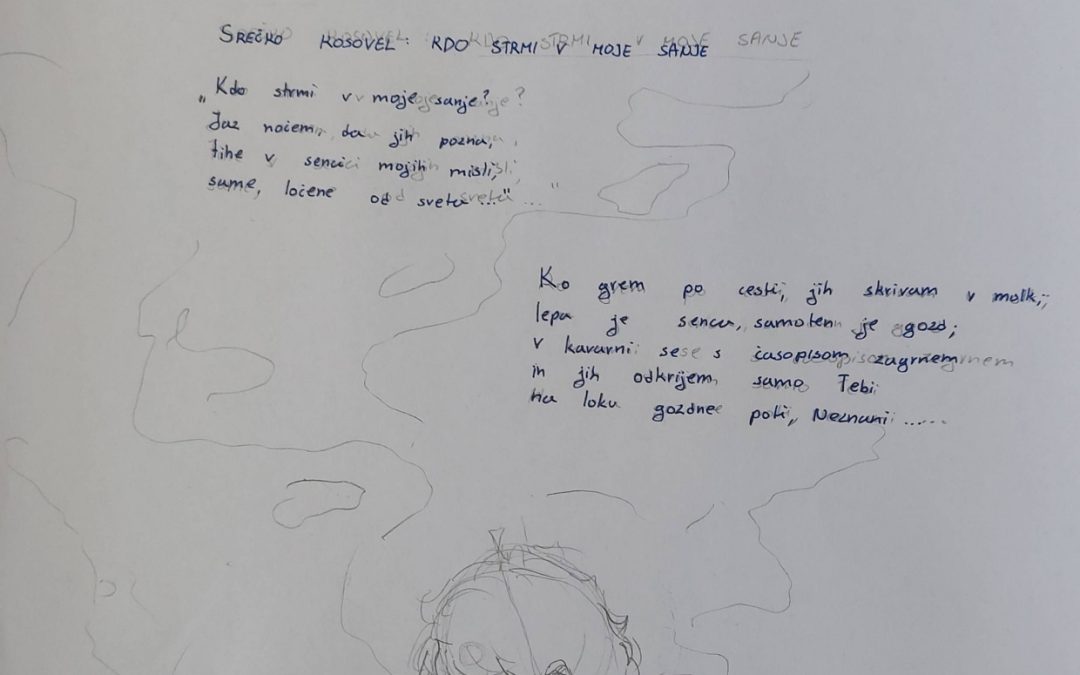 SREČKO KOSOVEL: KDO STRMI V MOJE SANJE
„Kdo strmi v moje sanje?
Jaz nočem, da jih pozna,
tihe v senci mojih misli,
same, ločene od sveta ..."
Ko grem po cesti, jih skrivam v molk,
lepa je senca, samoten je gozd;
v kavarni se s časopisom zagrnem
in jih odkrijem samo Tebi
na loku gozdne poti, Neznani .....